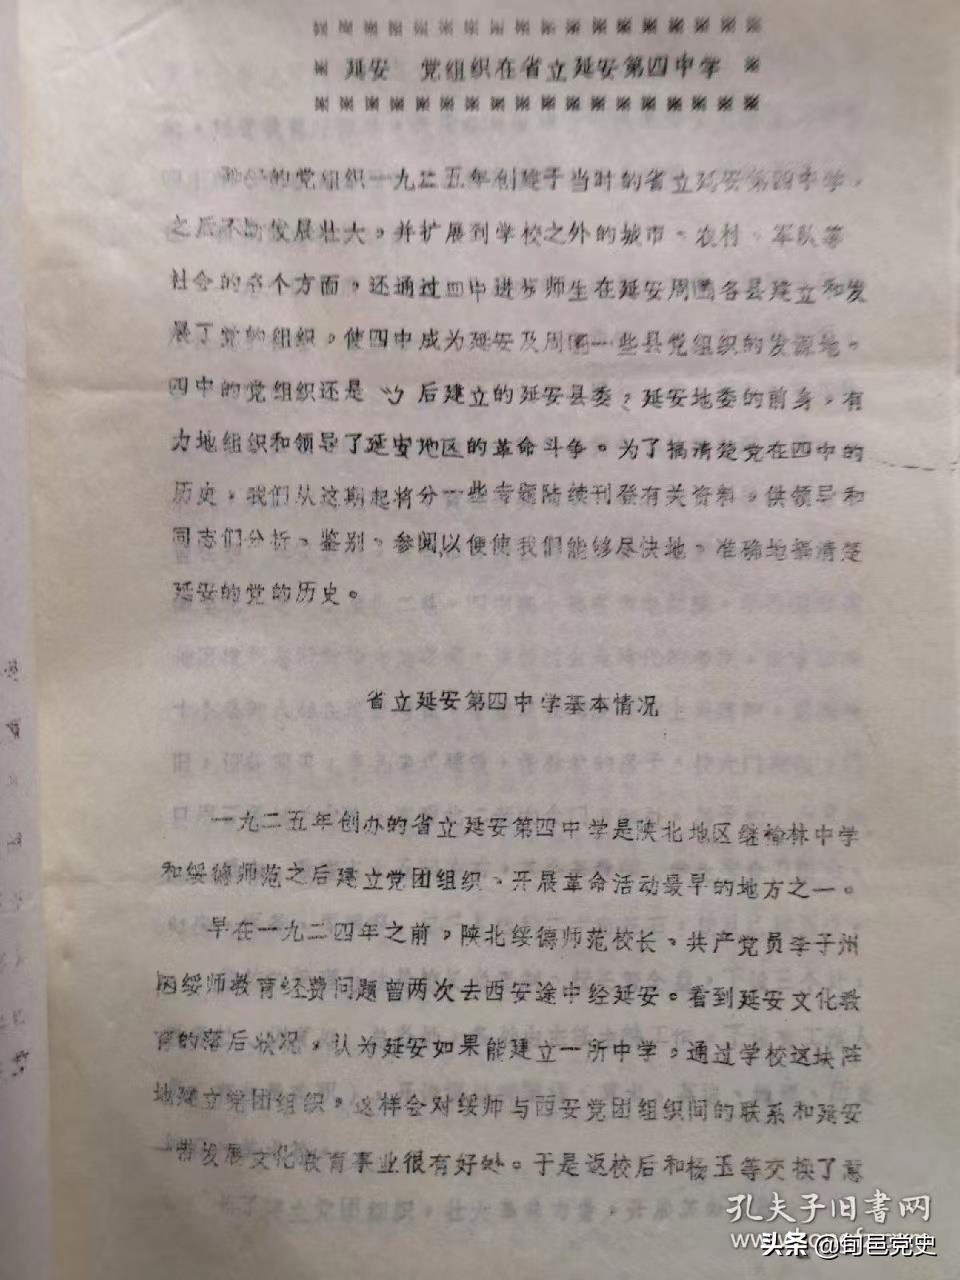 延安 党组织在省立延安第四中学
的党组织一九二五年创建于当时的省立延安第四中学，
之后不断发展壮大，并扩展到学校之外的城市、农村、军队等
社会的各个方面，还通过四中进步师生在延安周围各县建立和发
展了党的组织，使四中成为延安及周围一些县党组织的发源地。
四中的党组织还是 后建立的延安县委、延安地委的前身，有
力地组织和领导了延安地区的革命斗争。为了搞清楚党在四中的
历史，我们从这期起将分一些专题陆续刊登有关资料，供领导和
同志们分析、鉴别、参阅以便使我们能够尽快地、准确地搞清楚
延安的党的历史。
省立延安第四中学基本情况
一九二五年创办的省立延安第四中学是陕北地区继榆林中学
和绥德师范之后建立党团组织、开展革命活动最早的地方之一。
早在一九二四年之前，陕北绥德师范校长、共产党员李子州
因绥师教育经费问题曾两次去西安途中经延安。看到延安文化教
育的落后状况，认为延安如果能建立一所中学，通过学校这块阵
地建立党团组织，这样会对绥师与西安党团组织间的联系和延安
一带发展文化教育事业很有好处。于是返校后和杨玉等交换了意
孔夫子旧书网
头条 @旬邑党史